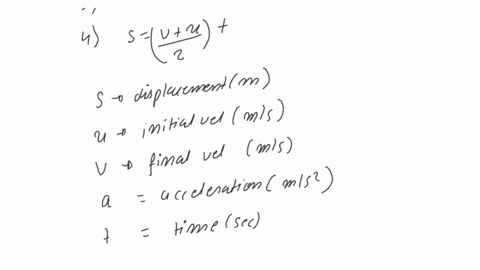 4) s = (v + u / 2) t
s → displacement (m)
u → initial vel (m/s)
v → final vel (m/s)
a = acceleration (m/s²)
t = time (sec)